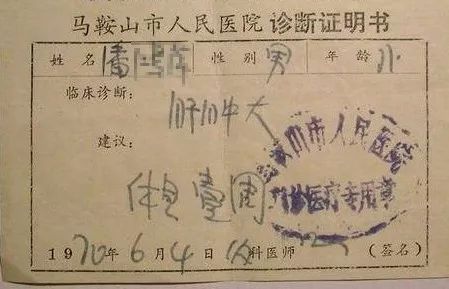 马鞍山市人民医院 诊断证明书
姓名 潘 性别 男 年龄
临床诊断：
肝肿大
建议：
休息壹周
山市人民医院
诊医疗专用章
1970年6月4日 科医师 （签名）